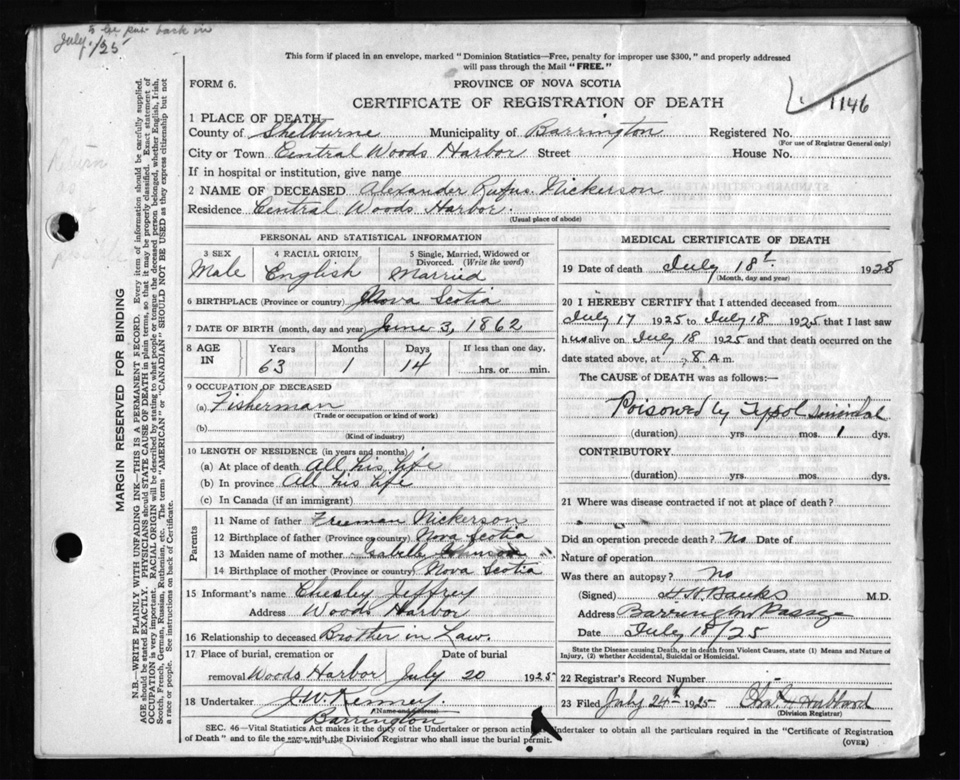 to be put back in
July /25
This form if placed in an envelope, marked "Dominion Statistics—Free, penalty for improper use $300," and properly addressed
will pass through the Mail "FREE."
FORM 6.
PROVINCE OF NOVA SCOTIA
CERTIFICATE OF REGISTRATION OF DEATH
1146
1 PLACE OF DEATH
County of Shelburne Municipality of Barrington Registered No.
(For use of Registrar General only)
City or Town Central Woods Harbor Street House No.
If in hospital or institution, give name
2 NAME OF DECEASED Alexander Rufus Nickerson
Residence Central Woods Harbor.
(Usual place of abode)
MARGIN RESERVED FOR BINDING
N.B.—WRITE PLAINLY WITH UNFADING INK—THIS IS A PERMANENT RECORD. Every item of information should be carefully supplied.
AGE should be stated EXACTLY. PHYSICIANS should STATE CAUSE OF DEATH in plain terms, so that it may be properly classified. Exact statement of
OCCUPATION is very important. RACIAL ORIGIN will be described by stating to what people or tongue the deceased person belonged, whether English, Irish,
Scotch, French, German, Russian, Ruthenian, etc. The terms "AMERICAN" or "CANADIAN" SHOULD NOT BE USED as they express citizenship but not
a race or people. See instructions on back of Certificate.
PERSONAL AND STATISTICAL INFORMATION
3 SEX
Male
4 RACIAL ORIGIN
English
5 Single, Married, Widowed or
Divorced. (Write the word)
Married
6 BIRTHPLACE (Province or country) Nova Scotia
7 DATE OF BIRTH (month, day and year) June 3, 1862
8 AGE
IN
Years Months Days If less than one day,
63 1 14 hrs. or min.
9 OCCUPATION OF DECEASED
(a) Fisherman
(Trade or occupation or kind of work)
(b)
(Kind of industry)
10 LENGTH OF RESIDENCE (in years and months)
(a) At place of death All his life
(b) In province All his life
(c) In Canada (if an immigrant)
Parents
11 Name of father Freeman Nickerson
12 Birthplace of father (Province or country) Nova Scotia
13 Maiden name of mother Isabelle Johnson
14 Birthplace of mother (Province or country) Nova Scotia
15 Informant's name Chesley Jeffrey
Address Woods Harbor
16 Relationship to deceased Brother in Law.
17 Place of burial, cremation or Date of burial
removal Woods Harbor July 20 1925
18 Undertaker J. W. Kenney.
(Name and address)
Barrington
MEDICAL CERTIFICATE OF DEATH
19 Date of death July 18t. 1925
(Month, day and year)
20 I HEREBY CERTIFY that I attended deceased from
July 17 1925 to July 18 1925 that I last saw
him alive on July 18 1925 and that death occurred on the
date stated above, at 8 A m.
The CAUSE OF DEATH was as follows:—
Poisoned by Zypol Suicidal
(duration) yrs. mos. 1 dys.
CONTRIBUTORY
(duration) yrs. mos. dys.
21 Where was disease contracted if not at place of death?
Did an operation precede death? No Date of
Nature of operation
Was there an autopsy? No
(Signed) Banks M.D.
Address Barrington Passage
Date July 18/25
State the Disease causing Death, or in death from Violent Causes, state (1) Means and Nature of
Injury, (2) whether Accidental, Suicidal or Homicidal.
22 Registrar's Record Number
23 Filed July 24th 1925 Hubbard
(Division Registrar)
SEC. 46—Vital Statistics Act makes it the duty of the Undertaker or person acting Undertaker to obtain all the particulars required in the "Certificate of Registration
of Death" and to file the same with the Division Registrar who shall issue the burial permit. (OVER)